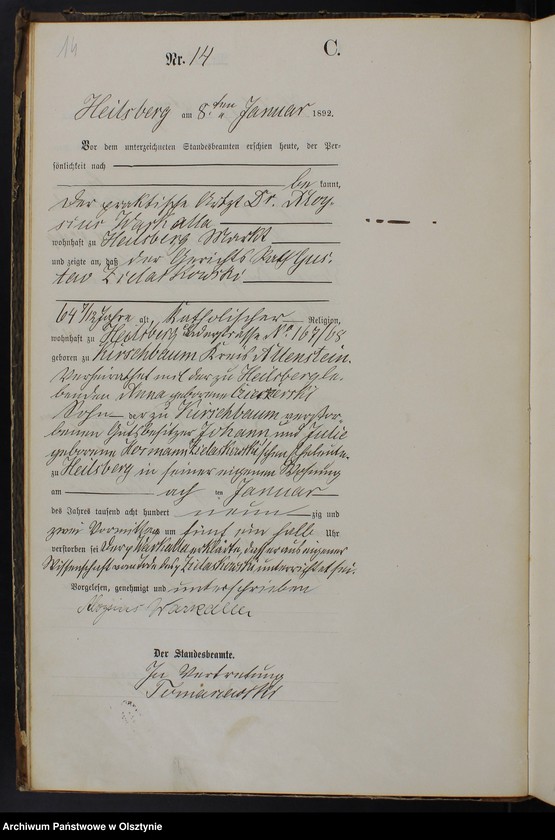 14
C.
Nr. 14
Heilsberg am 8ten Januar 1892.
Vor dem unterzeichneten Standesbeamten erschien heute, der Per-
sönlichkeit nach
be kannt,
Der praktische Artzt Dr. Aloy-
sius Warkalla
wohnhaft zu Heilsberg Markt
und zeigte an, daß der Gerichts Rath Gus-
tav Zielaskowski
64 7/12 Jahre alt, Katholischer Religion,
wohnhaft zu Heilsberg No 167/68
geboren zu Kirschbaum Kreis Allenstein.
Verheirathet mit der zu Heilsberg le-
benden Anna geborene
Sohn der zu Kirschbaum verstor-
benen Gutsbesitzer Johann und Julie
geborene Eheleute.
zu Heilsberg in seiner eigenen Wohnung
am acht ten Januar
des Jahres tausend acht hundert neun zig und
zwei Vormittag um fünf ein halb Uhr
verstorben sei Der p Warkalla erklärte, dass er aus eigener
Wissenschaft vom Tode des p Zielaskowski unterrichtet sei.
Vorgelesen, genehmigt und unterschrieben
Aloysius Warkalla
Der Standesbeamte.
In Vertretung
Archiwum Państwowe w Olsztynie